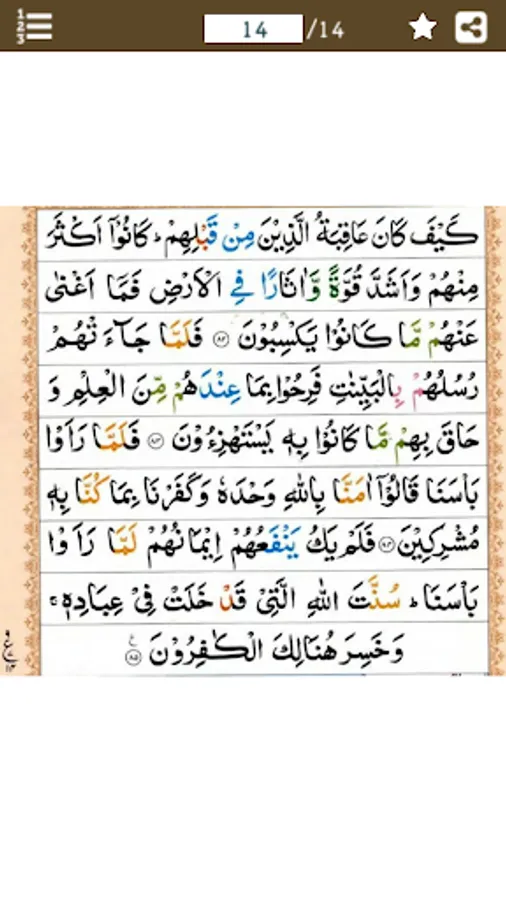 1 2 3
14 /14
كَيْفَ كَانَ عَاقِبَةُ الَّذِيْنَ مِنْ قَبْلِهِمْ ؕ كَانُوْۤا اَكْثَرَ
مِنْهُمْ وَاَشَدَّ قُوَّةً وَّاٰثَارًا فِي الْاَرْضِ فَمَاۤ اَغْنٰى
عَنْهُمْ مَّا كَانُوْا يَكْسِبُوْنَ ﴿۸۲﴾ فَلَمَّا جَآءَتْهُمْ
رُسُلُهُمْ بِالْبَيِّنٰتِ فَرِحُوْا بِمَا عِنْدَهُمْ مِّنَ الْعِلْمِ وَ
حَاقَ بِهِمْ مَّا كَانُوْا بِهٖ يَسْتَهْزِءُوْنَ ﴿۸۳﴾ فَلَمَّا رَاَوْا
بَاْسَنَا قَالُوْۤا اٰمَنَّا بِاللّٰهِ وَحْدَهٗ وَكَفَرْنَا بِمَا كُنَّا بِهٖ
مُشْرِكِيْنَ ﴿۸۴﴾ فَلَمْ يَكُ يَنْفَعُهُمْ اِيْمَانُهُمْ لَمَّا رَاَوْا
بَاْسَنَا ؕ سُنَّتَ اللّٰهِ الَّتِيْ قَدْ خَلَتْ فِيْ عِبَادِهٖ ۚ
وَخَسِرَ هُنَالِكَ الْكٰفِرُوْنَ ﴿۸۵﴾